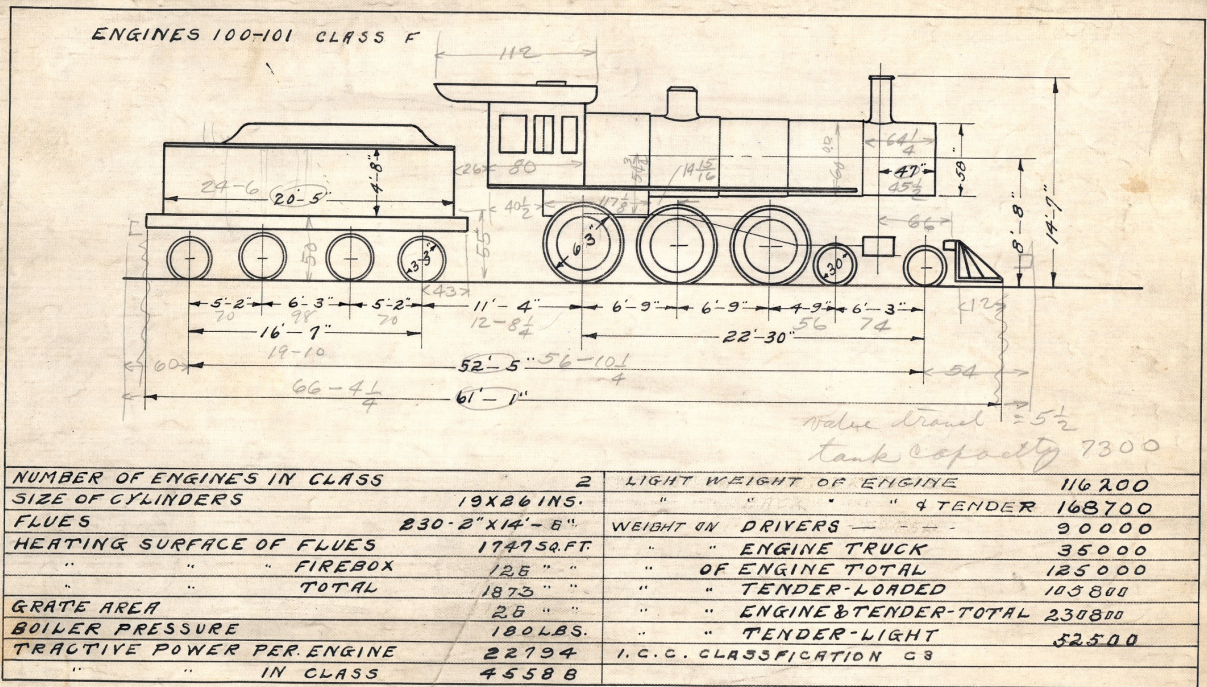 ENGINES 100-101 CLASS F
112
26 80
14 15/16
64 1/4
47"
45 1/2
58"
4'-8"
24-6
20'-5"
40 1/2
117 1/8
66
8'-8"
14'-7"
50
55
3'-3"
6'-3"
30"
43
12
5'-2" 6'-3" 5'-2" 11'-4" 6'-9" 6'-9" 4'-9" 6'-3"
70 98 70 12-8 1/4 56 74
16'-7" 22'-30"
19-10
60 52'-5" 56-10 1/4 54
66-4 1/4
61'-1"
valve travel = 5 1/2
tank capacity 7300
NUMBER OF ENGINES IN CLASS 2
SIZE OF CYLINDERS 19X26 INS.
FLUES 230-2"X14'-8"
HEATING SURFACE OF FLUES 1747 SQ. FT.
" " FIREBOX 126 " "
" " TOTAL 1873 " "
GRATE AREA 28 " "
BOILER PRESSURE 180 LBS.
TRACTIVE POWER PER. ENGINE 22794
" " IN CLASS 45588
LIGHT WEIGHT OF ENGINE 116200
" " " " & TENDER 168700
WEIGHT ON DRIVERS 90000
" " ENGINE TRUCK 35000
" OF ENGINE TOTAL 125000
" " TENDER-LOADED 105800
" " ENGINE & TENDER-TOTAL 230800
" " TENDER-LIGHT 52500
I.C.C. CLASSFICATION C3